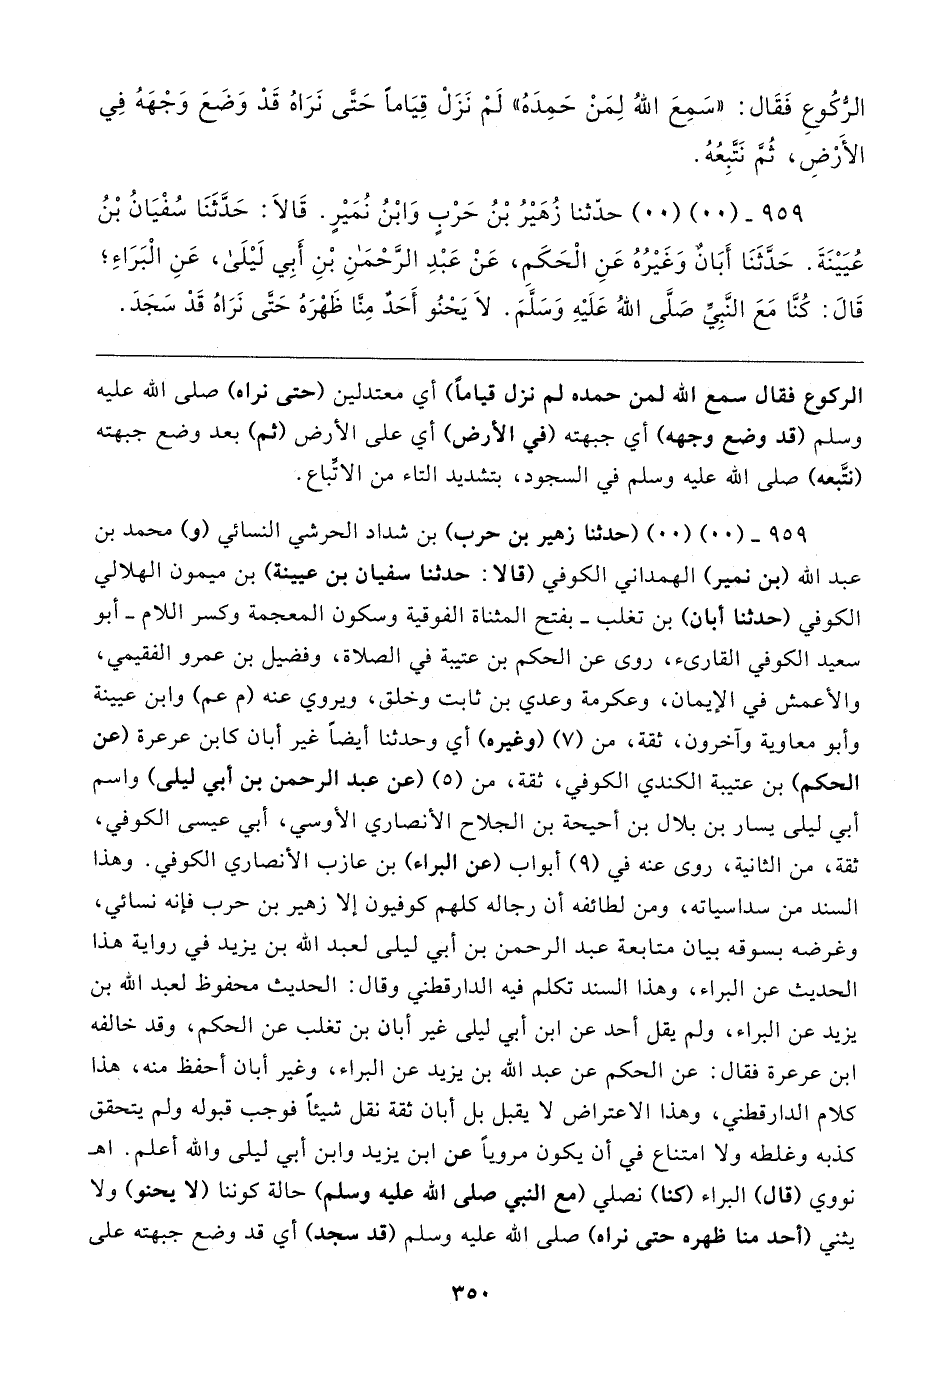 الرُّكُوعِ فَقَالَ: «سَمِعَ اللهُ لِمَنْ حَمِدَهُ» لَمْ نَزَلْ قِيَاماً حَتَّى نَرَاهُ قَدْ وَضَعَ وَجْهَهُ فِي
الأَرْضِ، ثُمَّ نَتَّبِعُهُ.
٩٥٩ ـ (٠٠) (٠٠) حدّثنا زُهَيْرُ بْنُ حَرْبٍ وَابْنُ نُمَيْرٍ. قَالاَ: حَدَّثَنَا سُفْيَانُ بْنُ
عُيَيْنَةَ. حَدَّثَنَا أَبَانٌ وَغَيْرُهُ عَنِ الْحَكَمِ، عَنْ عَبْدِ الرَّحْمَنِ بْنِ أَبِي لَيْلَىٰ، عَنِ الْبَرَاءِ؛
قَالَ: كُنَّا مَعَ النَّبِيِّ صَلَّى اللهُ عَلَيْهِ وَسَلَّمَ. لاَ يَحْنُو أَحَدٌ مِنَّا ظَهْرَهُ حَتَّى نَرَاهُ قَدْ سَجَدَ.
الركوع فقال سمع الله لمن حمده لم نزل قياماً) أي معتدلين (حتى نراه) صلى الله عليه
وسلم (قد وضع وجهه) أي جبهته (في الأرض) أي على الأرض (ثم) بعد وضع جبهته
(نتَّبعه) صلى الله عليه وسلم في السجود، بتشديد التاء من الاتِّباع.
٩٥٩ ـ (٠٠) (٠٠) (حدثنا زهير بن حرب) بن شداد الحرشي النسائي (و) محمد بن
عبد الله (بن نمير) الهمداني الكوفي (قالا: حدثنا سفيان بن عيينة) بن ميمون الهلالي
الكوفي (حدثنا أبان) بن تغلب ـ بفتح المثناة الفوقية وسكون المعجمة وكسر اللام ـ أبو
سعيد الكوفي القارىء، روى عن الحكم بن عتيبة في الصلاة، وفضيل بن عمرو الفقيمي،
والأعمش في الإيمان، وعكرمة وعدي بن ثابت وخلق، ويروي عنه (م عم) وابن عيينة
وأبو معاوية وآخرون، ثقة، من (٧) (وغيره) أي وحدثنا أيضاً غير أبان كابن عرعرة (عن
الحكم) بن عتيبة الكندي الكوفي، ثقة، من (٥) (عن عبد الرحمن بن أبي ليلى) واسم
أبي ليلى يسار بن بلال بن أحيحة بن الجلاح الأنصاري الأوسي، أبي عيسى الكوفي،
ثقة، من الثانية، روى عنه في (٩) أبواب (عن البراء) بن عازب الأنصاري الكوفي. وهذا
السند من سداسياته، ومن لطائفه أن رجاله كلهم كوفيون إلا زهير بن حرب فإنه نسائي،
وغرضه بسوقه بيان متابعة عبد الرحمن بن أبي ليلى لعبد الله بن يزيد في رواية هذا
الحديث عن البراء، وهذا السند تكلم فيه الدارقطني وقال: الحديث محفوظ لعبد الله بن
يزيد عن البراء، ولم يقل أحد عن ابن أبي ليلى غير أبان بن تغلب عن الحكم، وقد خالفه
ابن عرعرة فقال: عن الحكم عن عبد الله بن يزيد عن البراء، وغير أبان أحفظ منه، هذا
كلام الدارقطني، وهذا الاعتراض لا يقبل بل أبان ثقة نقل شيئاً فوجب قبوله ولم يتحقق
كذبه وغلطه ولا امتناع في أن يكون مروياً عن ابن يزيد وابن أبي ليلى والله أعلم. اهـ
نووي (قال) البراء (كنا) نصلي (مع النبي صلى الله عليه وسلم) حالة كوننا (لا يحنو) ولا
يثني (أحد منا ظهره حتى نراه) صلى الله عليه وسلم (قد سجد) أي قد وضع جبهته على
٣٥٠